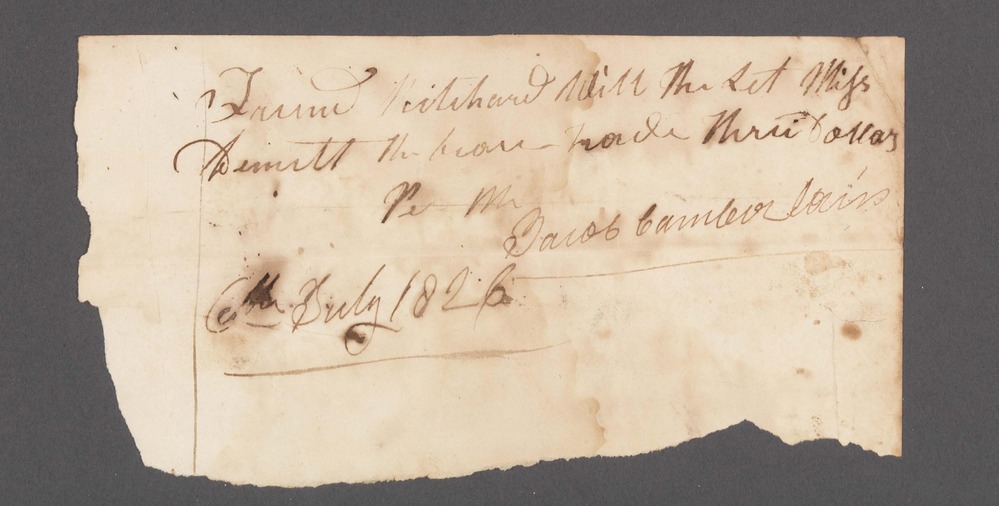 Friend Pitchard Will thu Let Miss
Demitt the bearer have thru Dollars
Per Me
Jacob Camberlain
6th July 1826